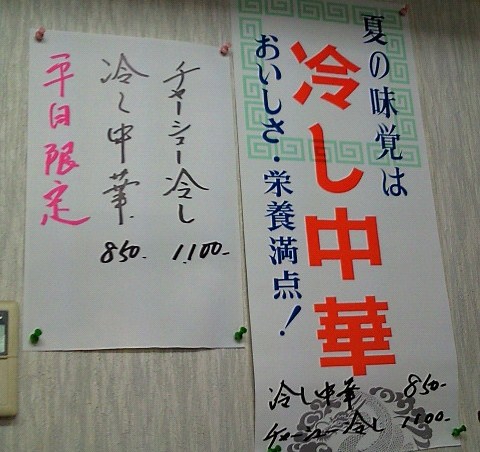 夏の味覚は
冷し中華
おいしさ・栄養満点!
冷し中華 850-
チャーシュー冷し 1100-
チャーシュー冷し 1,100-
冷し中華 850-
平日限定